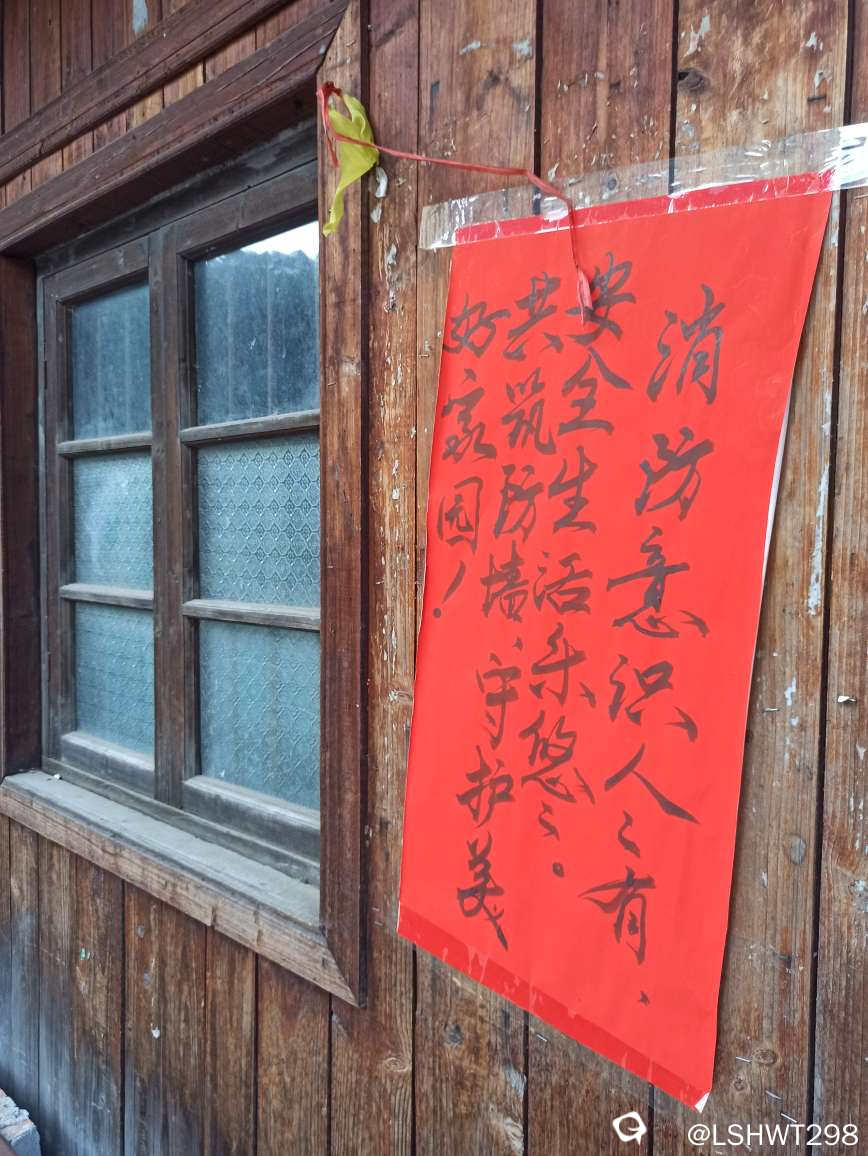 消防意识人々有、
安全生活乐悠々。
共筑防墙、守护美
好家园！
@LSHWT298